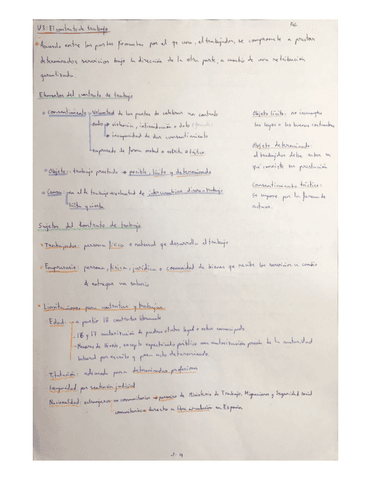 U3. El contrato de trabajo
* Acuerdo entre las partes firmantes por el que una, el trabajador, se compromete a prestar
determinados servicios bajo la dirección de la otra parte, a cambio de una retribución
garantizada.
Elementos del contrato de trabajo
Consentimiento → Voluntad de las partes de celebrar un contrato
violencia, intimidación o dolo
incapacidad de dar consentimiento
expresado de forma verbal o escrita o tácita
Objeto: trabajo prestado → posible, lícito y determinado
Causa
Objeto lícito: no incumple
las leyes o las buenas costumbres
Objeto determinado
el trabajador debe saber en
qué consiste su prestación
Consentimiento tácito:
se supone por la forma de
actuar.
Sujetos del contrato de trabajo
Trabajador: persona física o natural que desarrolla el trabajo
Empresario: persona, física, jurídica o comunidad de bienes que recibe los servicios a cambio
de entregar un salario
Limitaciones para contratar y trabajar
Edad: a partir 18 contratar libremente
16 y 17 autorización de padres o tutor legal o estar emancipado
Menores de 16 no, excepto espectáculo público con autorización previa de la autoridad
laboral por escrito y para acto determinado
Titulación: adecuada para determinadas profesiones
Incapacidad por sentencia judicial
Nacionalidad: extranjeros no comunitarios → permiso de Ministerio de Trabajo, Migraciones y Seguridad social
comunitarios → derecho a libre circulación en España